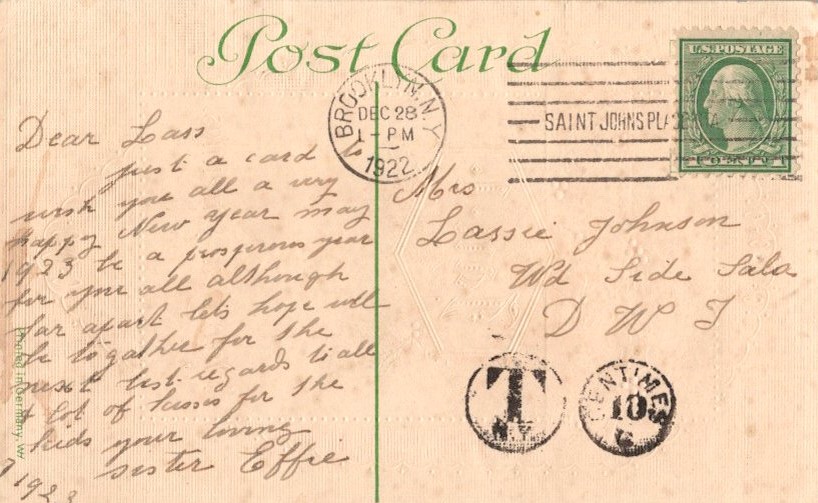 Post Card
BROOKLYN, N.Y.
DEC 28
1 - PM
1922
SAINT JOHNS PLACE STA
U.S. POSTAGE
Dear Lass
just a card
wish you all a very
happy New year may
1923 be a prosperous year
for you all although
far apart lets hope will
be together for the
next best regards to all
& lot of kisses for the
kids your loving
sister Effie
Mrs
Lassie Johnson
Wd Side Saba
D W I
T
N.Y.
CENTIMES
10
Printed in Germany.